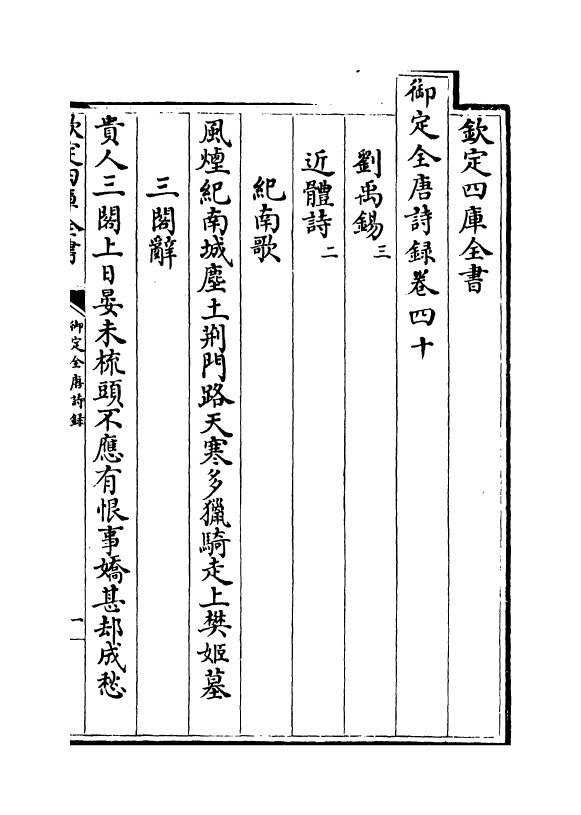 欽定四庫全書
御定全唐詩録卷四十
劉禹錫三
近體詩二
紀南歌
風煙紀南城塵土荆門路天寒多獵騎走上樊姬墓
三閣辭
貴人三閣上日晏未梳頭不應有恨事嬌甚却成愁
欽定四庫全書
御定全唐詩録
一